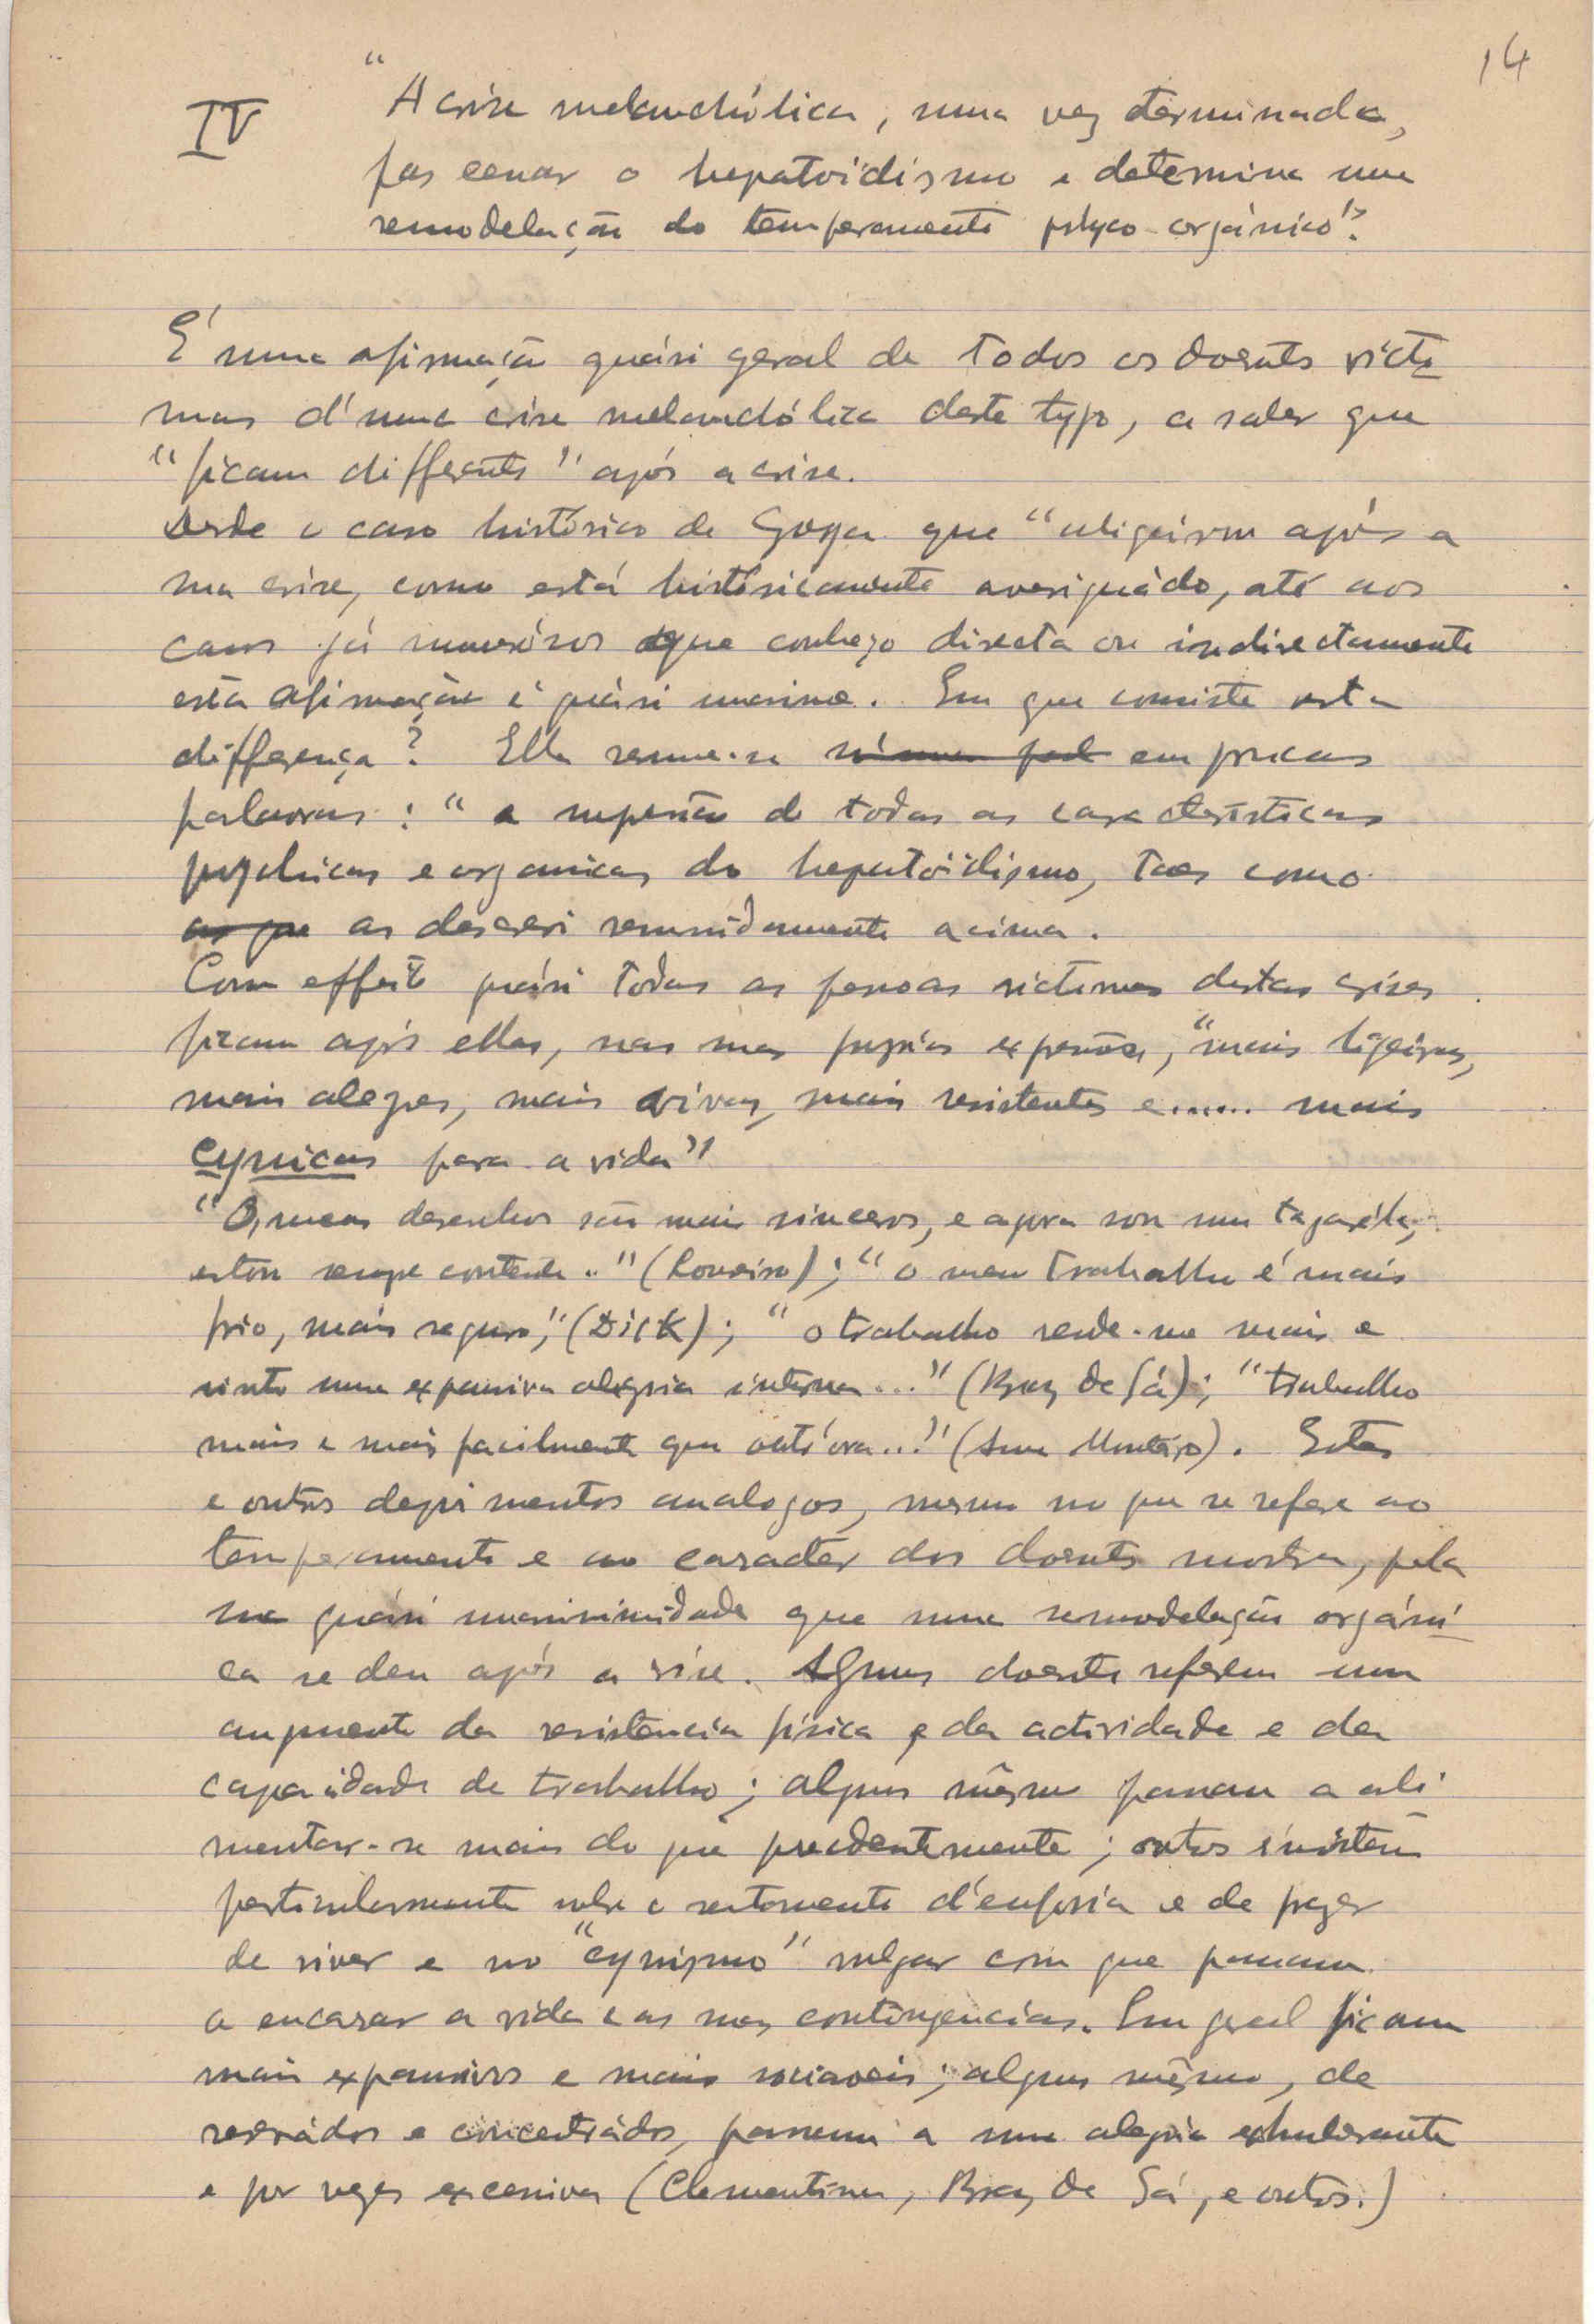 14
IV
"A crise melanchólica, uma vez terminada,
faz cessar o hepatoïdismo e determina uma
remodelação do temperamento psyco-orgánico".
É uma afirmação quási geral de todos os doentes victi
mas d'uma crise melanchólica deste typo, a saber que
"ficam differentes" após a crise.
Desde o caso histórico de Goya que "aligeirou após a
sua crise, como está históricamente averiguádo, até aos
casos já numerósos que conheço directa ou indirectamente
esta afirmação é quási unanime. Em que consiste esta
differença? Ella resume-se em poucas
palavras: "a supressão de todas as caracteristicas
psychicas e organicas do hepatoïdismo, taes como
as descrevi resumidamente acima.
Com effeito quási todas as pessoas victimas destas crises
ficam após ellas, nas suas proprias expressões, "mais ligeiras,
mais alegres, mais vivas, mais resistentes e...... mais
cynicas para a vida"
"Os meus desenhos são mais sinceros, e agora sou um tagaréla,
estou sempre contente.." (Loureiro); "o meu trabalho é mais
frio, mais seguro," (Dick); "o trabalho rende-me mais e
sinto uma expansiva alegria interna..." (Braz de Sá); "trabalho
mais e mais facilmente que outr'ora..." (Monteiro). Estes
e outros depoimentos analogos, mesmo no que se refere ao
temperamento e ao caracter dos doentes mostra, pela
sua quási unanimidade que uma remodelação orgáni
ca se deu após a crise. Alguns doentes referem um
augmento da resistencia física e da actividade e da
capacidade de trabalho; alguns mesmo passam a ali
mentar-se mais do que precedentemente; outros insistem
particularmente sobre o sentimento d'euforia e de prazer
de viver e no "cynismo" vulgar com que passam
a encarar a vida e as suas contingencias. Em geral ficam
mais expansivos e mais sociaveis; alguns mesmo, de
reservádos e concentrádos, passam a uma alegria exhuberante
e por vezes excessiva (Clementina, Braz de Sá, e outros.)